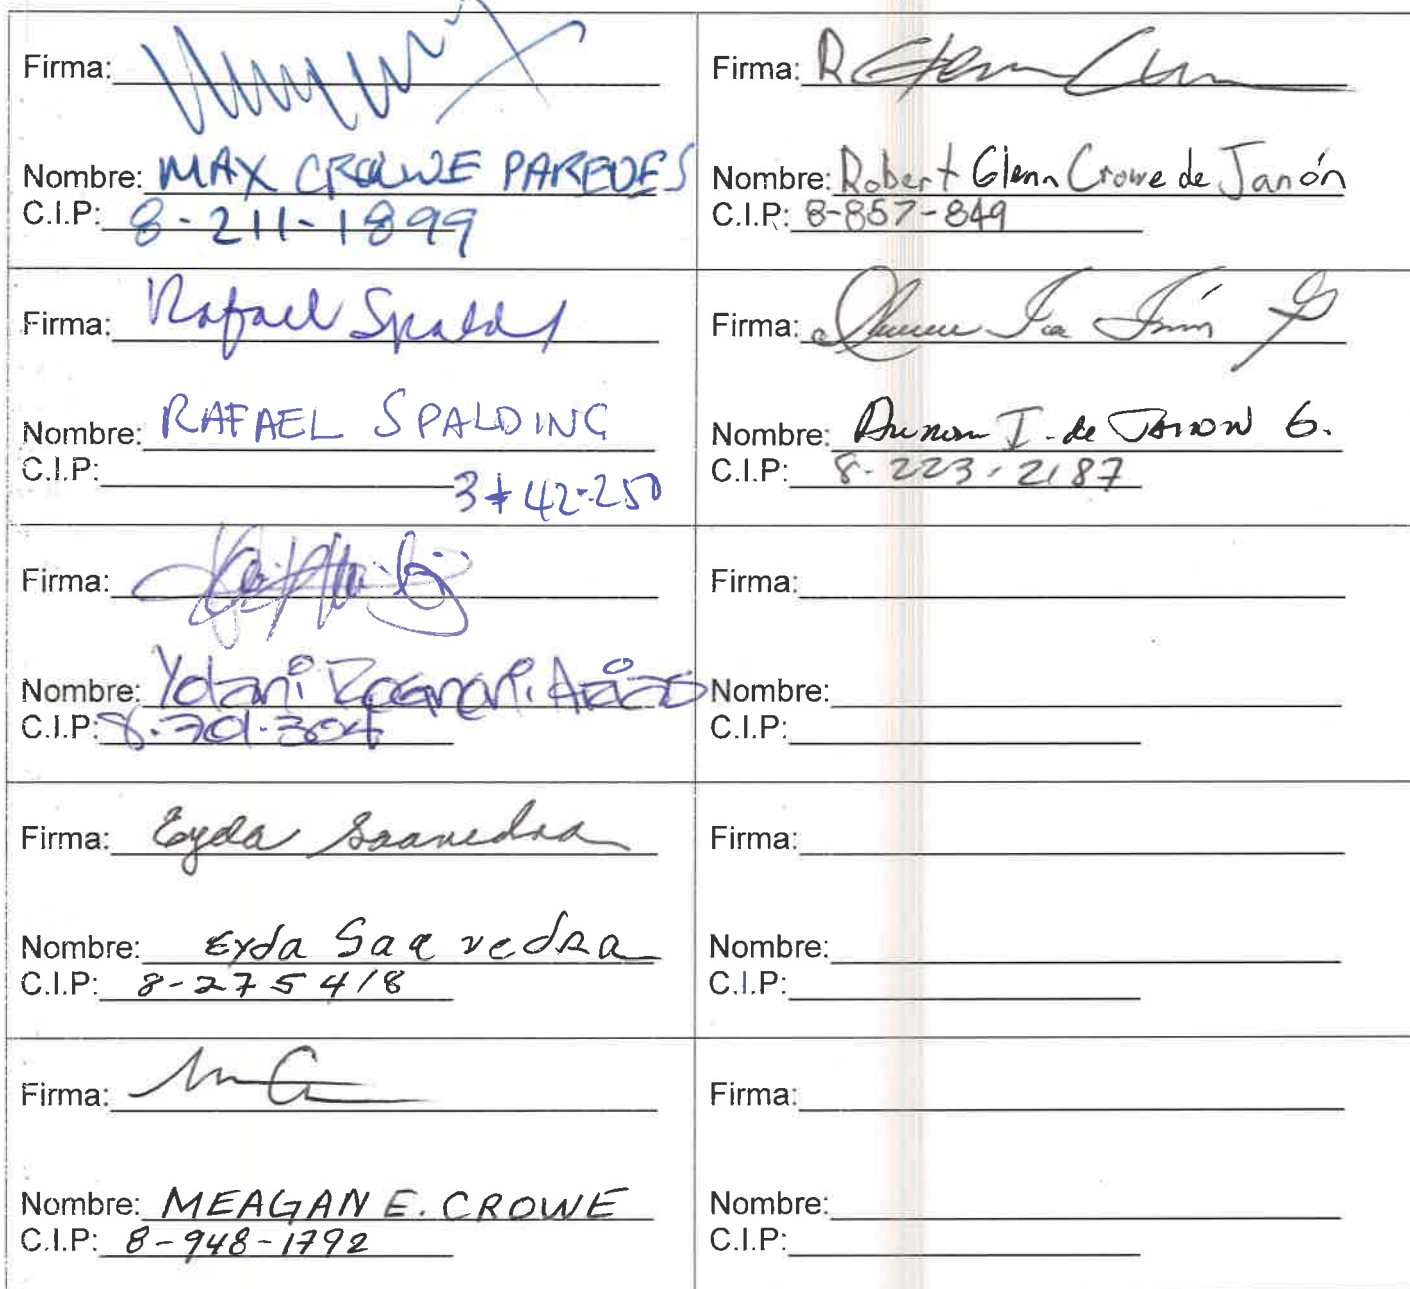 Firma:
Nombre: MAX CROWE PAREDES
C.I.P: 8-211-1899
Firma: R Glenn
Nombre: Robert Glenn Crowe de Janón
C.I.P: 8-857-849
Firma: Rafael Spald
Nombre: RAFAEL SPALDING
C.I.P: 42-250
Firma:
Nombre: I. de JANON G.
C.I.P: 8-223-2187
Firma:
Nombre: Yolani
C.I.P: 8-701-304
Firma:
Nombre:
C.I.P:
Firma: Eyda Saavedra
Nombre: Eyda Saavedra
C.I.P: 8-275 418
Firma:
Nombre:
C.I.P:
Firma:
Nombre: MEAGAN E. CROWE
C.I.P: 8-948-1792
Firma:
Nombre:
C.I.P: